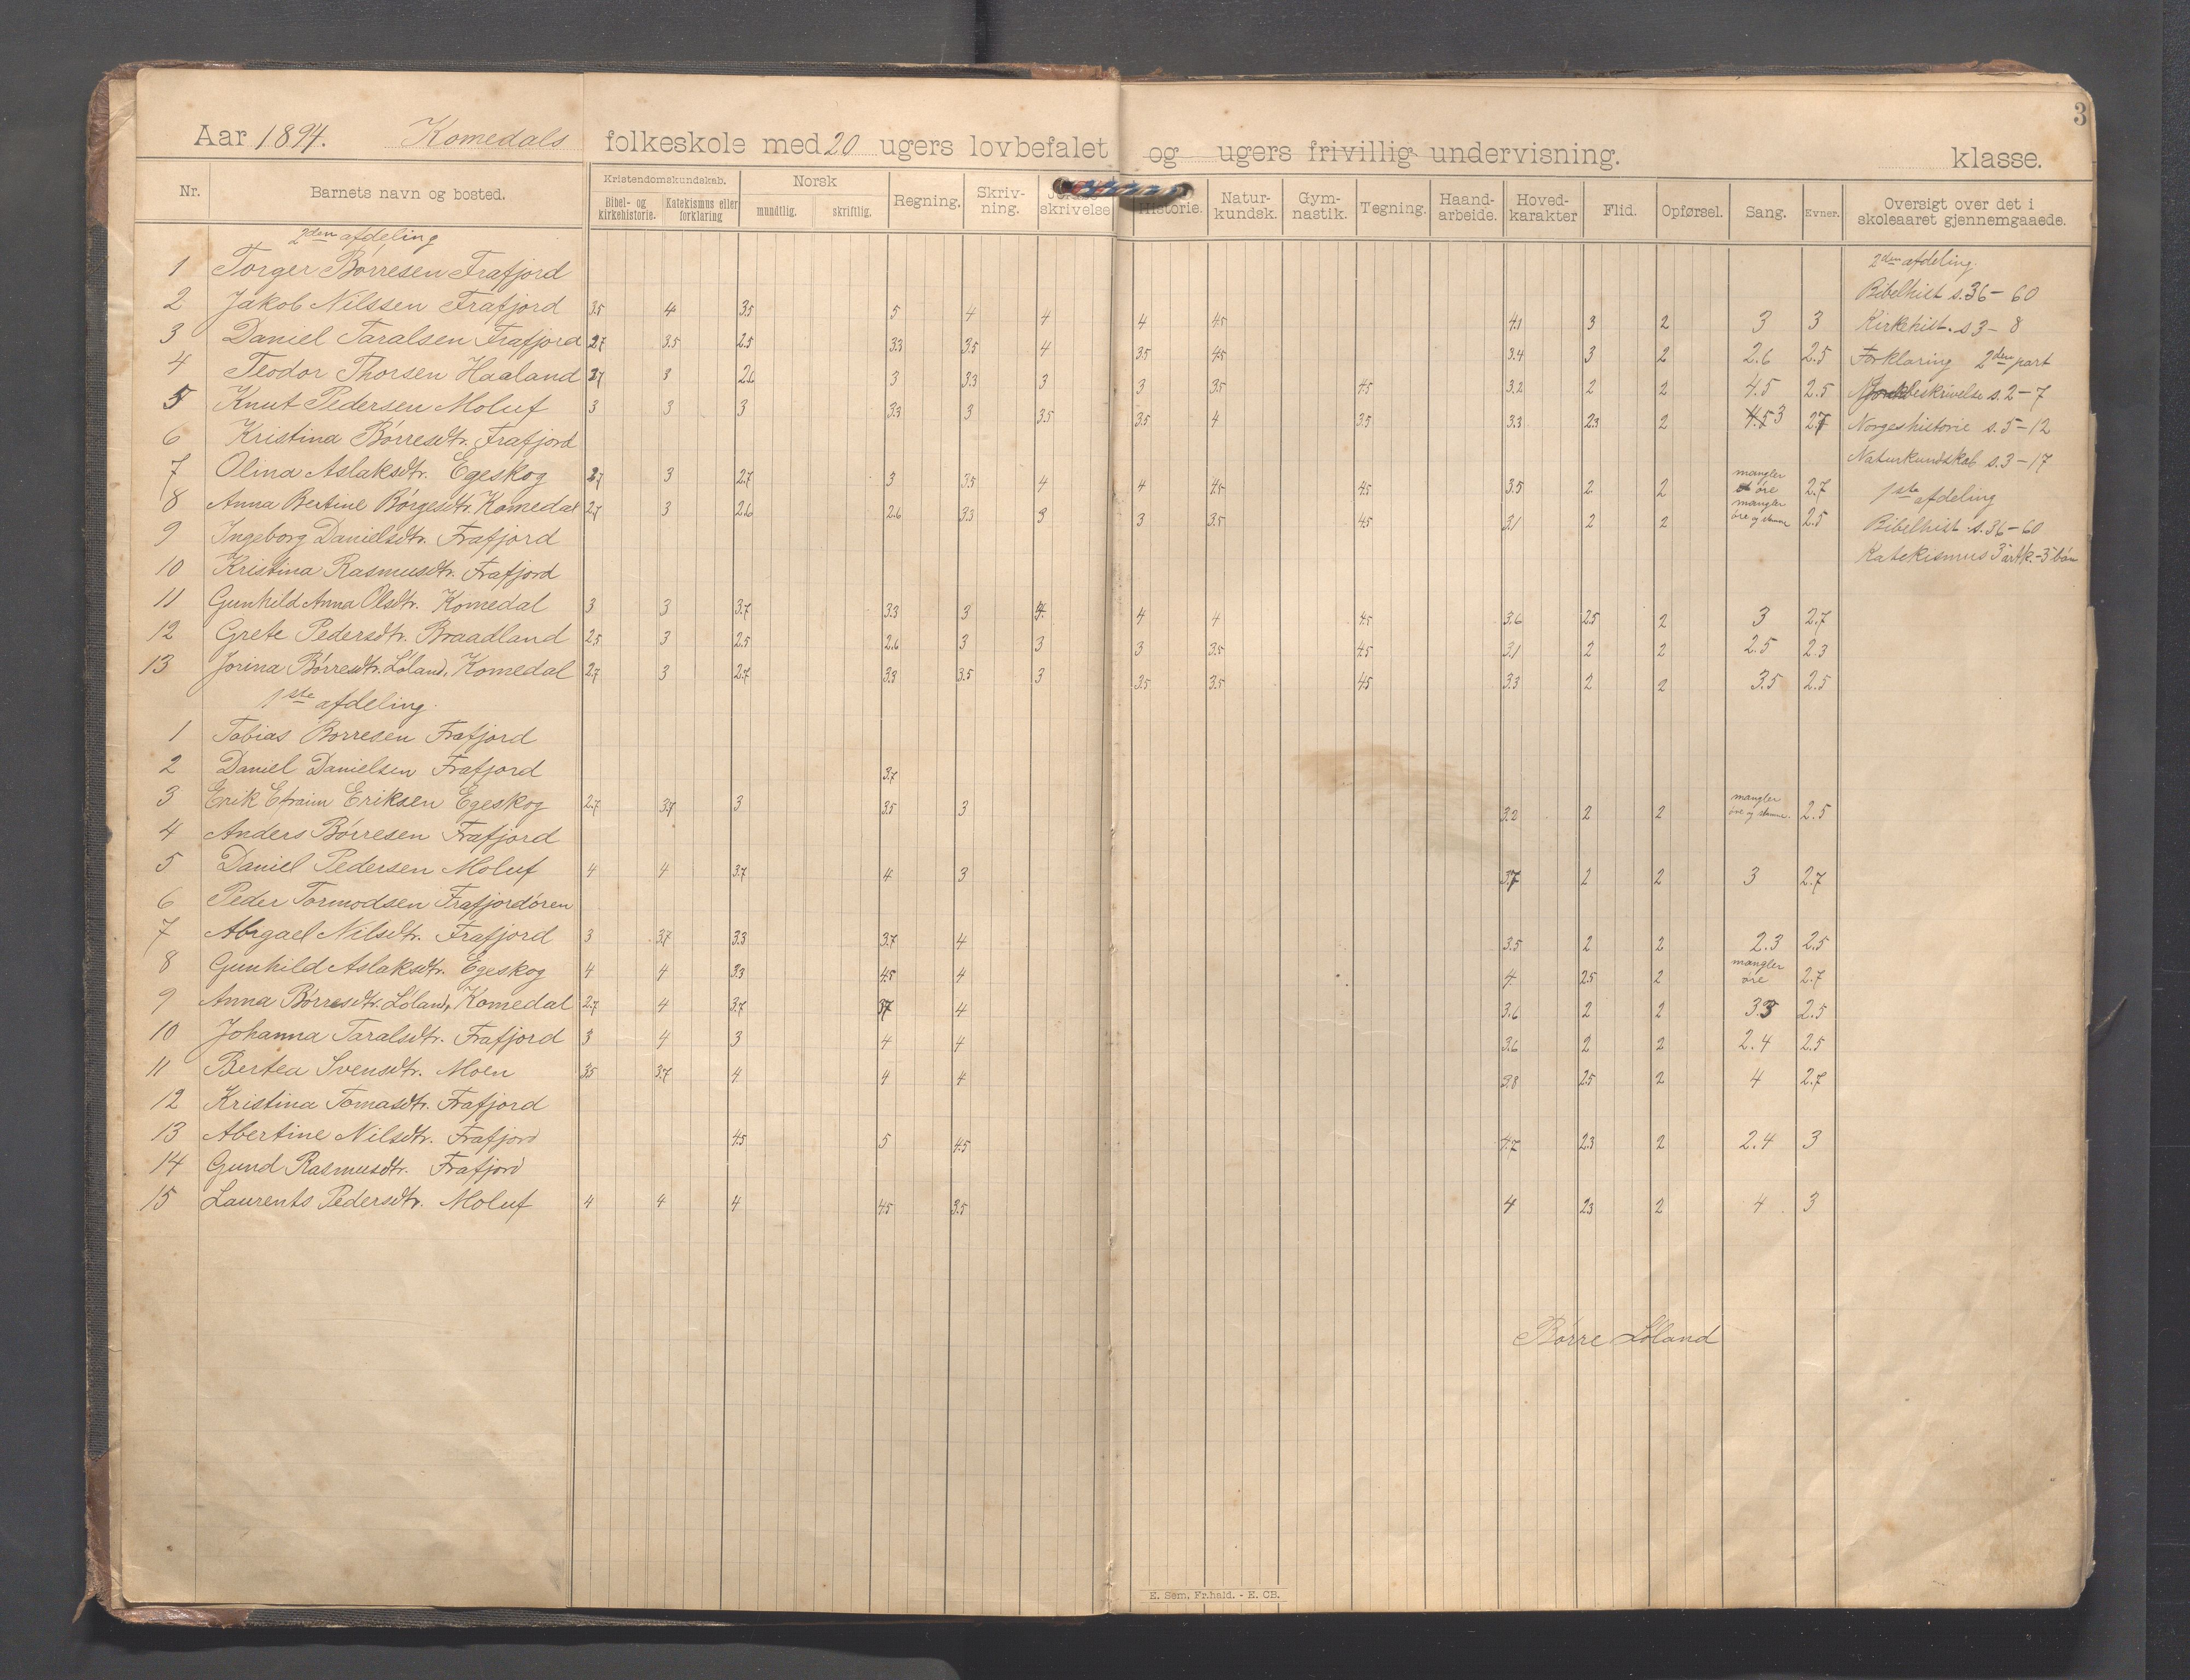 3
Aar 1894. Komedals folkeskole med 20 ugers lovbefalet og ugers frivillig undervisning. klasse.
Nr. Barnets navn og bosted. Kristendomskundskab. Bibel- og kirkehistorie. Katekismus eller forklaring Norsk mundtlig. skriftlig. Regning. Skriv-ning. skrivelse Historie. Natur-kundsk. Gym-nastik. Tegning. Haand-arbeide. Hoved-karakter Flid. Opførsel. Sang. Evner. Oversigt over det i skoleaaret gjennemgaaede.
2den afdeling
2den afdeling.
1 Torger Børresen Frafjord
Bibelhist s. 36-60
2 Jakob Nilssen Frafjord 3.5 4 3.5 5 4 4 4 4.5 4.1 3 2 3 3 Kirkehist. s 3-8
3 Daniel Taralsen Frafjord 2.7 3.5 2.5 3.3 3.5 4 3.5 4.5 3.4 3 2 2.6 2.5 Forklaring 2den part
4 Teodor Thorsen Haaland 2.7 3 2.6 3 3.3 3 3 3.5 4.5 3.2 2 2 4.5 2.5 beskrivelse s. 2-7
5 Knut Pedersen Moluf 3 3 3 3.3 3 3.5 3.5 4 3.5 3.3 2.3 2 4.5 3 2.7 Norgeshistorie s. 5-12
6 Kristina Børresdtr. Frafjord
Naturkundskab s. 3-17
7 Olina Aslaksdtr. Egeskog 2.7 3 2.7 3 3.5 4 4 4.5 4.5 3.5 2 2 mangler øre 2.7 1ste afdeling
8 Anna Bertine Børgesdtr. Komedal 2.7 3 2.6 2.6 3.3 3 3 3.5 4.5 3.1 2 2 mangler øre og stemme 2.5 Bibelhist s. 36-60
9 Ingeborg Danielsdtr. Frafjord
Katekismus 3 artk.-3 bøn
10 Kristina Rasmusdtr. Frafjord
11 Gunhild Anna Olsdtr. Komedal 3 3 3.7 3.3 3 4 4 4.5 3.6 2.5 2 3 2.7
12 Grete Pedersdtr. Braadland 2.5 3 2.5 2.6 3 3 3 3.5 4.5 3.1 2 2 2.5 2.3
13 Jorina Børresdtr. Løland, Komedal 2.7 3 2.7 3.3 3.5 3 3.5 3.5 4.5 3.3 2 2 3.5 2.5
1ste afdeling.
1 Tobias Børresen Frafjord
2 Daniel Danielsen Frafjord 3.7
3 Erik Efraim Eriksen Egeskog 2.7 3.7 3 3.5 3 3.2 2 2 mangler øre og stemme. 2.5
4 Anders Børresen Frafjord
5 Daniel Pedersen Moluf 4 4 3.7 4 3 3.7 2 2 3 2.7
6 Peder Tormodsen Frafjordøren
7 Abigael Nilsdtr. Frafjord 3 3.7 3.3 3.7 4 3.5 2 2 2.3 2.5
8 Gunhild Aslaksdtr. Egeskog 4 4 3.3 4.5 4 4 2.5 2 mangler øre 2.7
9 Anna Børresdtr. Løland, Komedal 2.7 4 3.7 3.7 4 3.6 2 2 3.3 2.5
10 Johanna Taralsdtr. Frafjord 3 4 3 4 4 3.6 2 2 2.4 2.5
11 Bertea Svensdtr. Moen 3.5 3.7 4 4 4 3.8 2.5 2 4 2.7
12 Kristina Tomasdtr. Frafjord
13 Abertine Nilsdtr. Frafjord 4.5 5 4.5 4.7 2.3 2 2.4 3
14 Gund Rasmusdtr. Frafjord
15 Laurents Pedersdtr. Moluf 4 4 4 4.5 3.5 4 2.3 2 4 3
Børre Løland
E. Sem. Fr.hald. - E. CB.